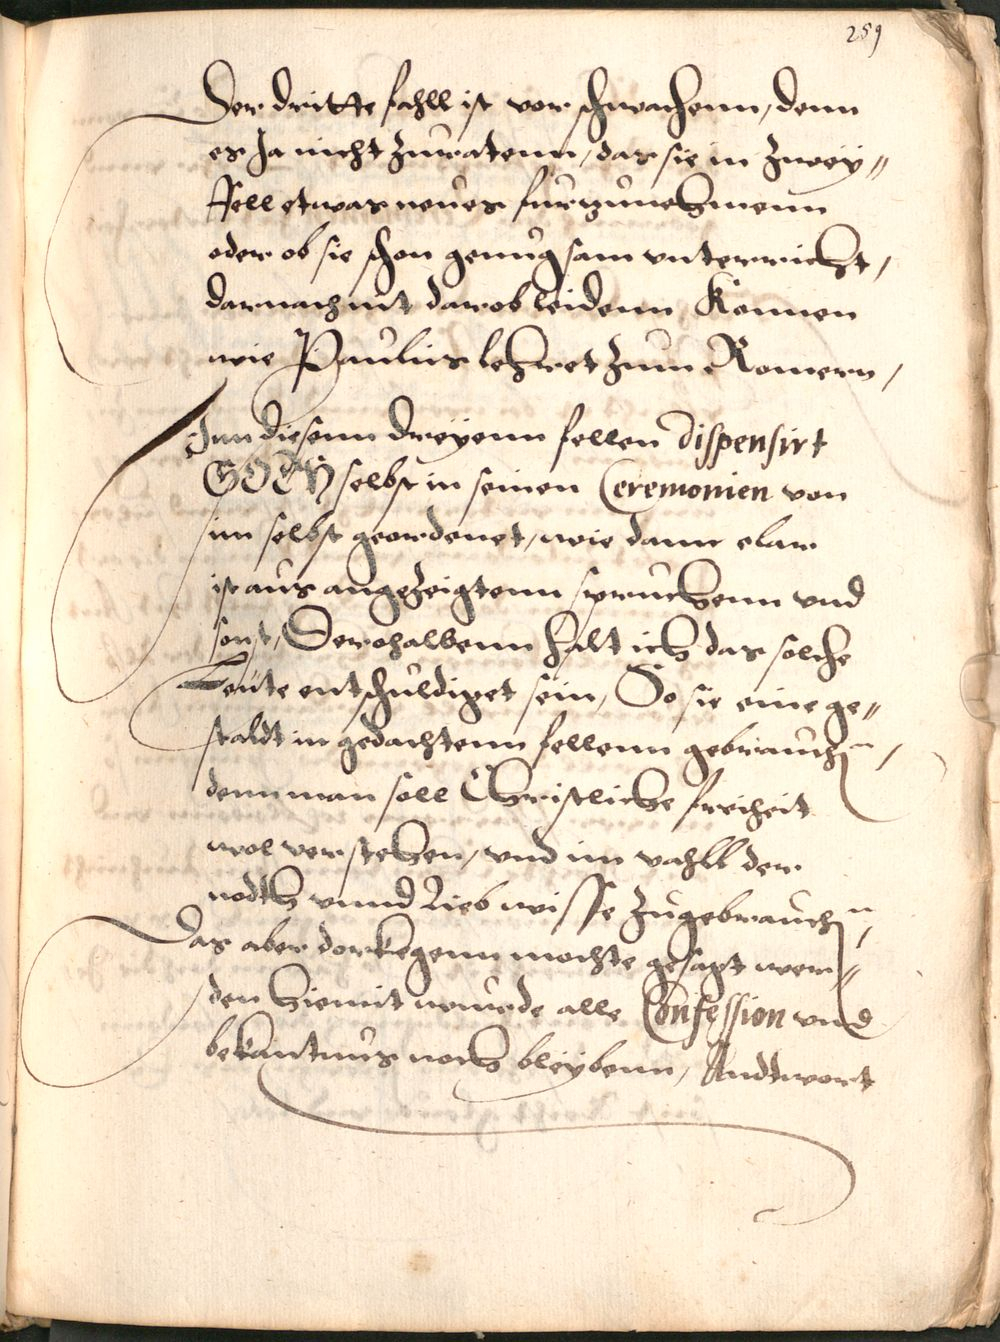 259
Der dritte fahll ist vor schwachenn, denn
es Ja nicht zuratenn, das sie in zwey⸗
ffell etwas neues furzunehmenn
oder ob sie schon genugsam vnterricht,
darnach nit darob leidenn konnen
wie Paulus lehret zun Romern,
Inn diesenn dreyenn fellen dispensirt
GOTH selbst in seinen Ceremonien von
im selbst geordenet, wie dann clar
ist aus angezeigtenn spruchenn vnd
sonst, Derohalbenn halt ich das solche
Leute entschuldiget sein, So sie eine ge⸗
staldt in gedachtenn fellenn gebrauchn,
denn man soll Christliche freiheit
wol verstehen, vnd im vahll der
nodth vnnd Lieb wisse zugebrauchn,
Das aber dorkegenn mochte gesagt wer⸗
den hiemit wurde alle Confession vnd
bekantnus noch bleybenn, Andtwort